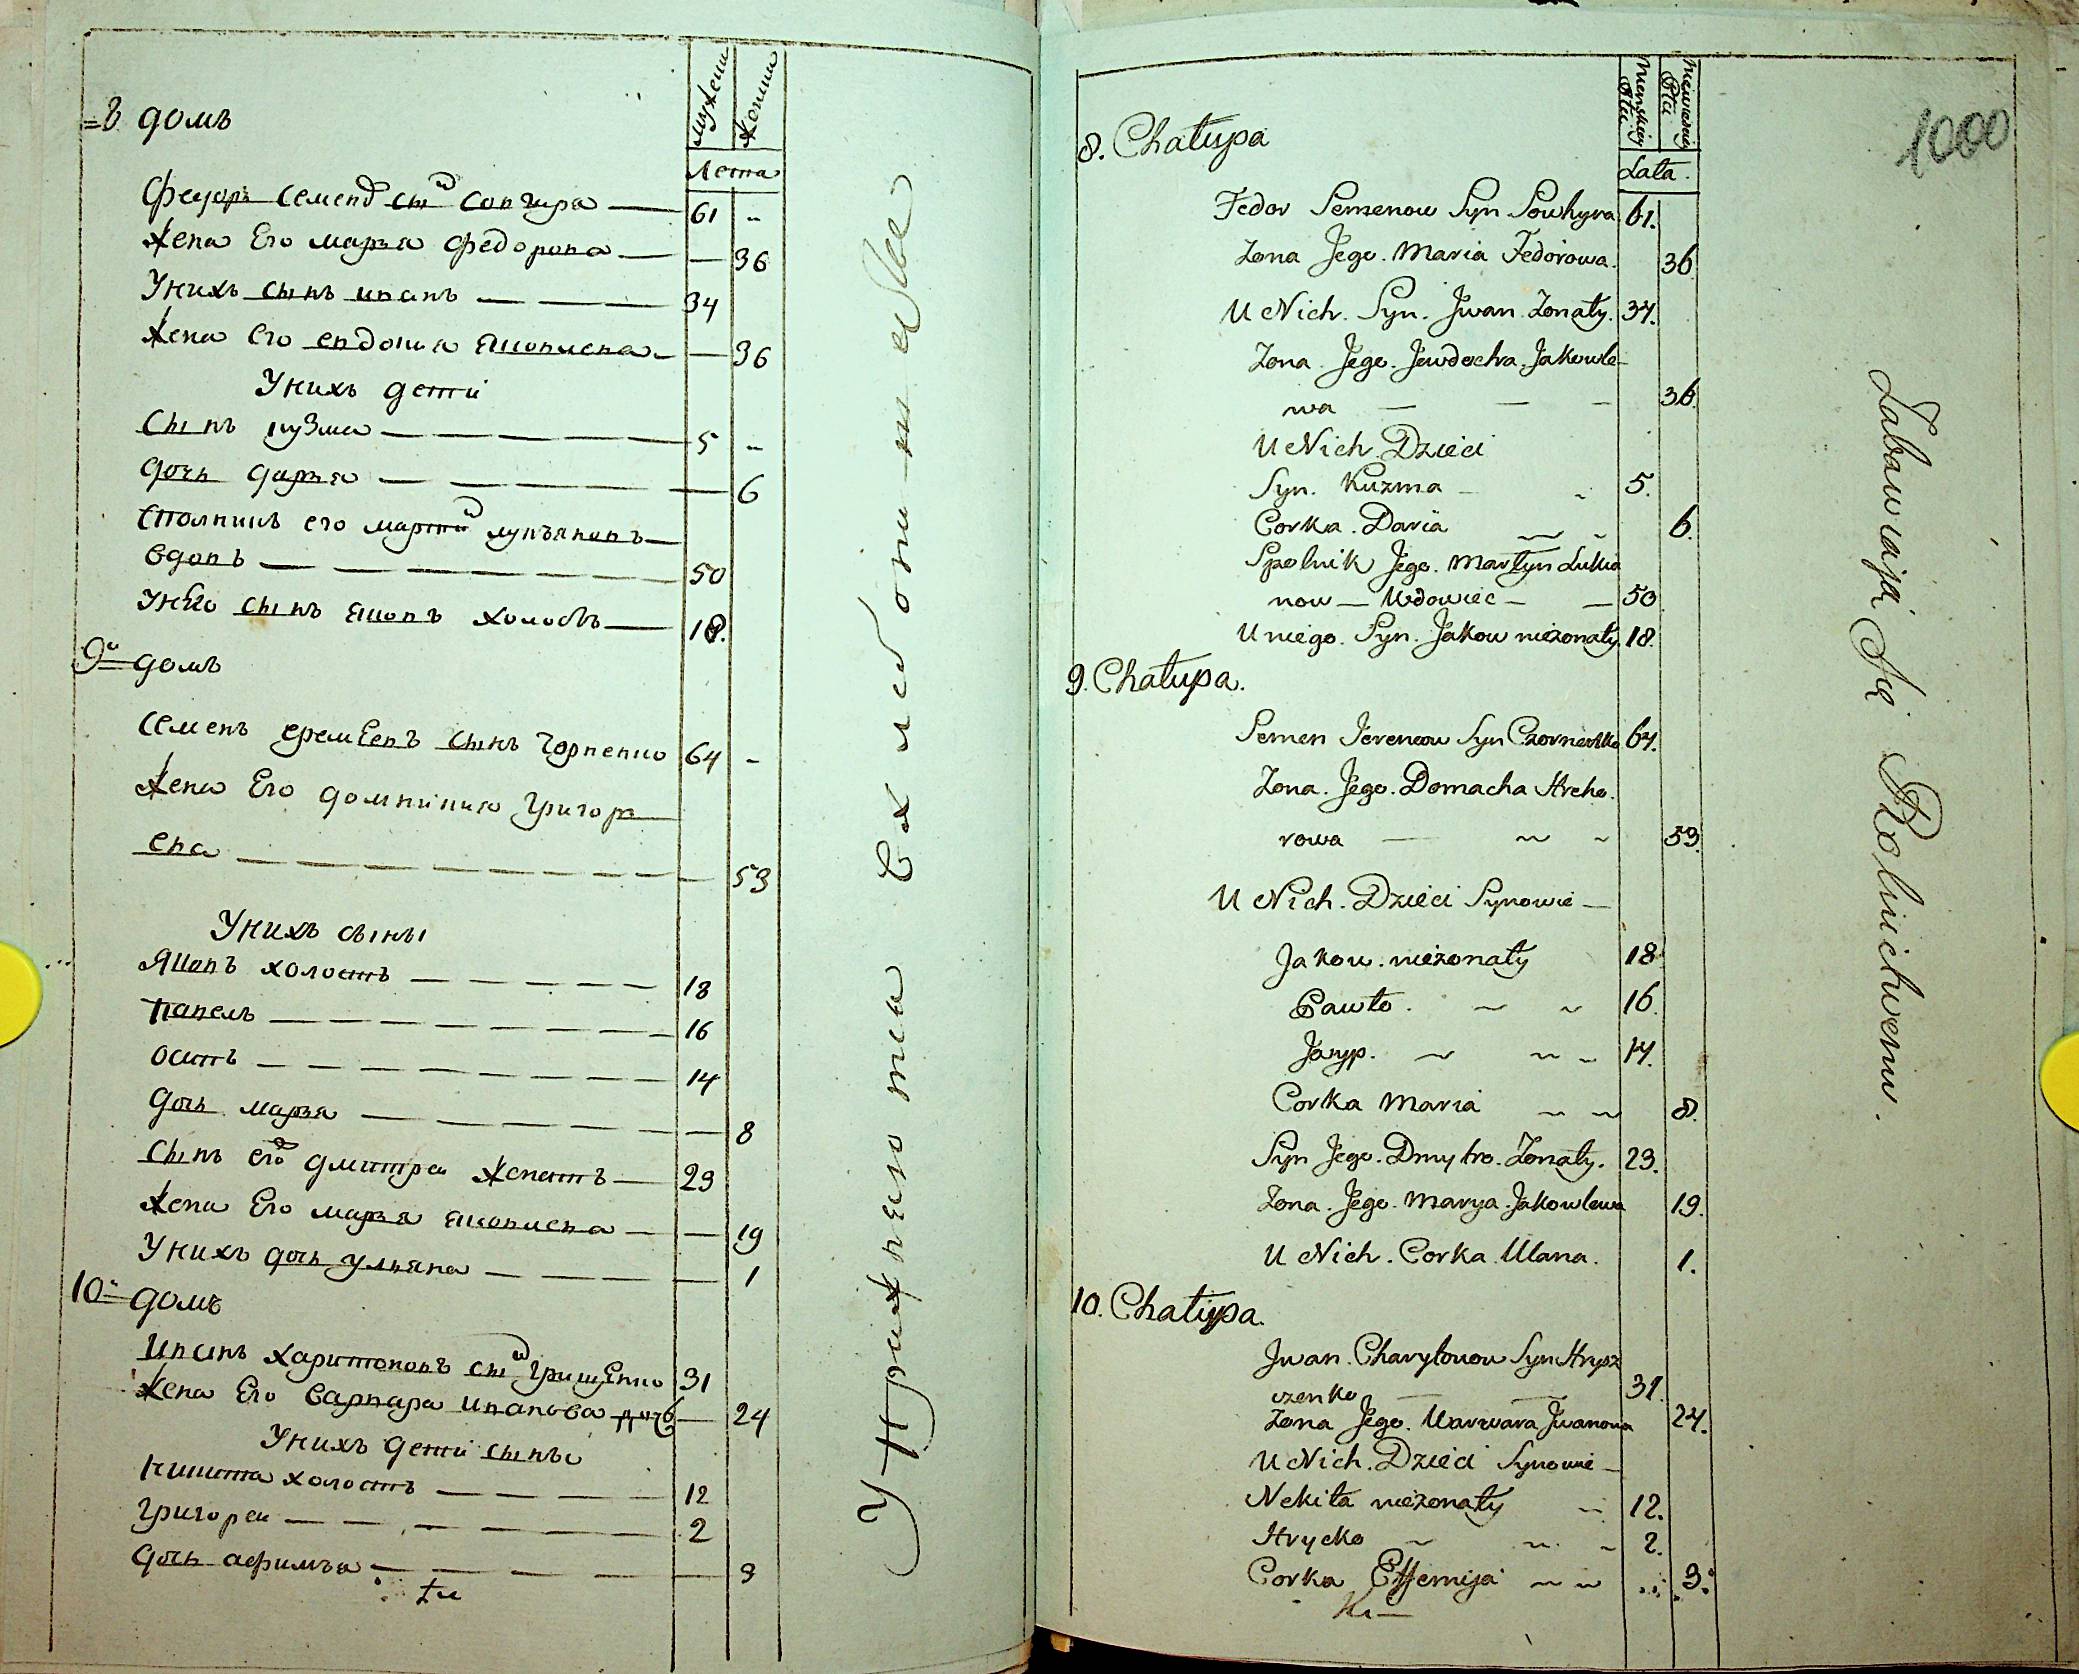 мужески
женски
Лета
8 домъ
Федоръ семенов сын Совгира 61
жена Его марья федорова 36
У них сынъ иванъ 34
жена его евдокия яковлева 36
У нихъ дети
Сынъ кузма 5
дочь дарья 6
Столникъ его мартин лукъяновъ
вдовъ 50
У него сынъ яковъ холостъ 18.
9й домъ
Семенъ еремеевъ сынъ Чорненко 64
жена Его домникия григорь
ева 53
У нихъ сыны
Яковъ холостъ 18
павелъ 16
осипъ 14
дочь марья 8
Сынъ его дмитреи женатъ 23
жена Его марья яковлева 19
У нихъ дочь ульяна 1
10й домъ
Иванъ харитоновъ сын грищенко 31
жена Его варвара иванова 24
У нихъ дети сыны
никита холостъ 12
григореи 2
дочь афимья 3
Упражняются в хлебопашестве
1000
Mienskiey Płci
Niewieściey Płci
Lata.
8. Chałupa
Fedor Semenow Syn Sowhyra 61.
Zona Jego. Maria Fedorowa. 36
U Nich. Syn. Jwan Zonaty. 34.
Zona. Jego. Jewdocha. Jakowle-
wa 36
U Nich Dzieci
Syn. Kuzma 5.
Corka. Daria 6.
Spolnik Jego. Martyn Lukia
now — Wdowiec — 50
U niego. Syn. Jakow nieżonaty. 18.
9. Chałupa.
Semen Jeremeow Syn Czornenko 64.
Zona. Jego. Domacha Hreho.
rowa 53.
U Nich. Dzieci Synowie —
Jakow. nieżonaty 18
Pawło. 16.
Jozyp. 14.
Corka Maria 8.
Syn Jego. Dmytro. Zonaty. 23.
Zona. Jego. Marya. Jakowlewa 19.
U Nich. Corka Ulana. 1.
10. Chałupa.
Jwan. Charytonow Syn Hrysz
czenko 31.
Zona Jego. Warwara Jwanowa 24.
U Nich. Dzieci Synowie —
Nekita nieżonaty 12.
Hrycko 2.
Corka Effemija 3.
Zabawiają Się Rolnictwem.